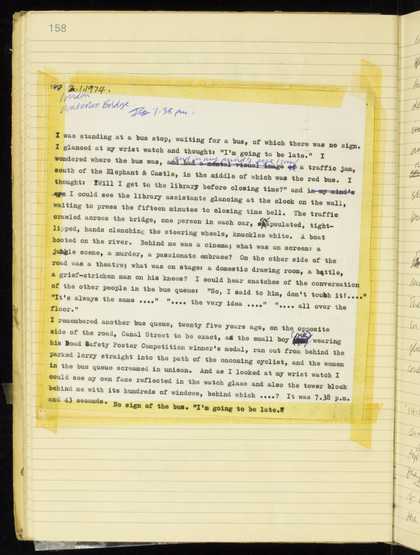 158
2.1.1974.
London
7.38 pm.
I was standing at a bus stop, waiting for a bus, of which there was no sign.
I glanced at my wrist watch and thought: "I'm going to be late." I
wondered where the bus was, and had a mental visual image of a traffic jam,
south of the Elephant & Castle, in the middle of which was the red bus. I
thought: "Will I get to the library before closing time?" and in my mind's
eye I could see the library assistants glancing at the clock on the wall,
waiting to press the fifteen minutes to closing time bell. The traffic
crawled across the bridge, one person in each car, populated, tight-
lipped, hands clenching the steering wheels, knuckles white. A boat
hooted on the river. Behind me was a cinema; what was on screen: a
jungle scene, a murder, a passionate embrace? On the other side of the
road was a theatre; what was on stage: a domestic drawing room, a battle,
a grief-stricken man on his knees? I could hear snatches of the conversation
of the other people in the bus queue: "So, I said to him, don't touch it!...."
"It's always the same ...." ".... the very idea ...." ".... all over the
floor."
I remembered another bus queue, twenty five years ago, on the opposite
side of the road, Canal Street to be exact, as the small boy wearing
his Road Safety Poster Competition winner's medal, ran out from behind the
parked lorry straight into the path of the oncoming cyclist, and the women
in the bus queue screamed in unison. And as I looked at my wrist watch I
could see my own face reflected in the watch glass and also the tower block
behind me with its hundreds of windows, behind which ....? It was 7.38 p.m.
and 43 seconds. No sign of the bus. "I'm going to be late."